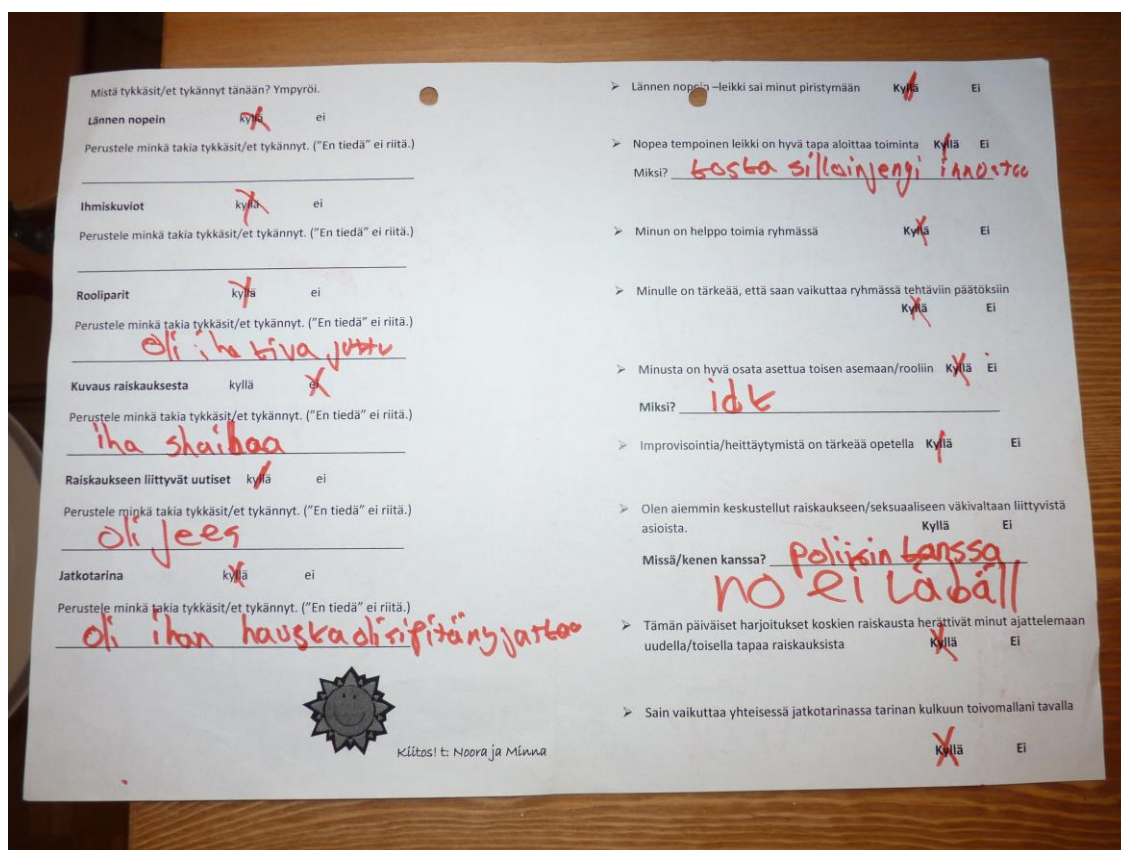 Mistä tykkäsit/et tykännyt tänään? Ympyröi.
Lännen nopein kyllä ei
Perustele minkä takia tykkäsit/et tykännyt. ("En tiedä" ei riitä.)
Ihmiskuviot kyllä ei
Perustele minkä takia tykkäsit/et tykännyt. ("En tiedä" ei riitä.)
Rooliparit kyllä ei
Perustele minkä takia tykkäsit/et tykännyt. ("En tiedä" ei riitä.)
oli iha kiva juttu
Kuvaus raiskauksesta kyllä ei
Perustele minkä takia tykkäsit/et tykännyt. ("En tiedä" ei riitä.)
iha shaibaa
Raiskaukseen liittyvät uutiset kyllä ei
Perustele minkä takia tykkäsit/et tykännyt. ("En tiedä" ei riitä.)
oli jees
Jatkotarina kyllä ei
Perustele minkä takia tykkäsit/et tykännyt. ("En tiedä" ei riitä.)
oli ihan hauska olisi pitäny jatkaa
Kiitos! t: Noora ja Minna
➢ Lännen nopein –leikki sai minut piristymään Kyllä Ei
➢ Nopea tempoinen leikki on hyvä tapa aloittaa toiminta Kyllä Ei
Miksi? koska silloin jengi innostuu
➢ Minun on helppo toimia ryhmässä Kyllä Ei
➢ Minulle on tärkeää, että saan vaikuttaa ryhmässä tehtäviin päätöksiin
Kyllä Ei
➢ Minusta on hyvä osata asettua toisen asemaan/rooliin Kyllä Ei
Miksi? idk
➢ Improvisointia/heittäytymistä on tärkeää opetella Kyllä Ei
➢ Olen aiemmin keskustellut raiskaukseen/seksuaaliseen väkivaltaan liittyvistä
asioista. Kyllä Ei
Missä/kenen kanssa? poliisin kanssa
no ei
➢ Tämän päiväiset harjoitukset koskien raiskausta herättivät minut ajattelemaan
uudella/toisella tapaa raiskauksista Kyllä Ei
➢ Sain vaikuttaa yhteisessä jatkotarinassa tarinan kulkuun toivomallani tavalla
Kyllä Ei